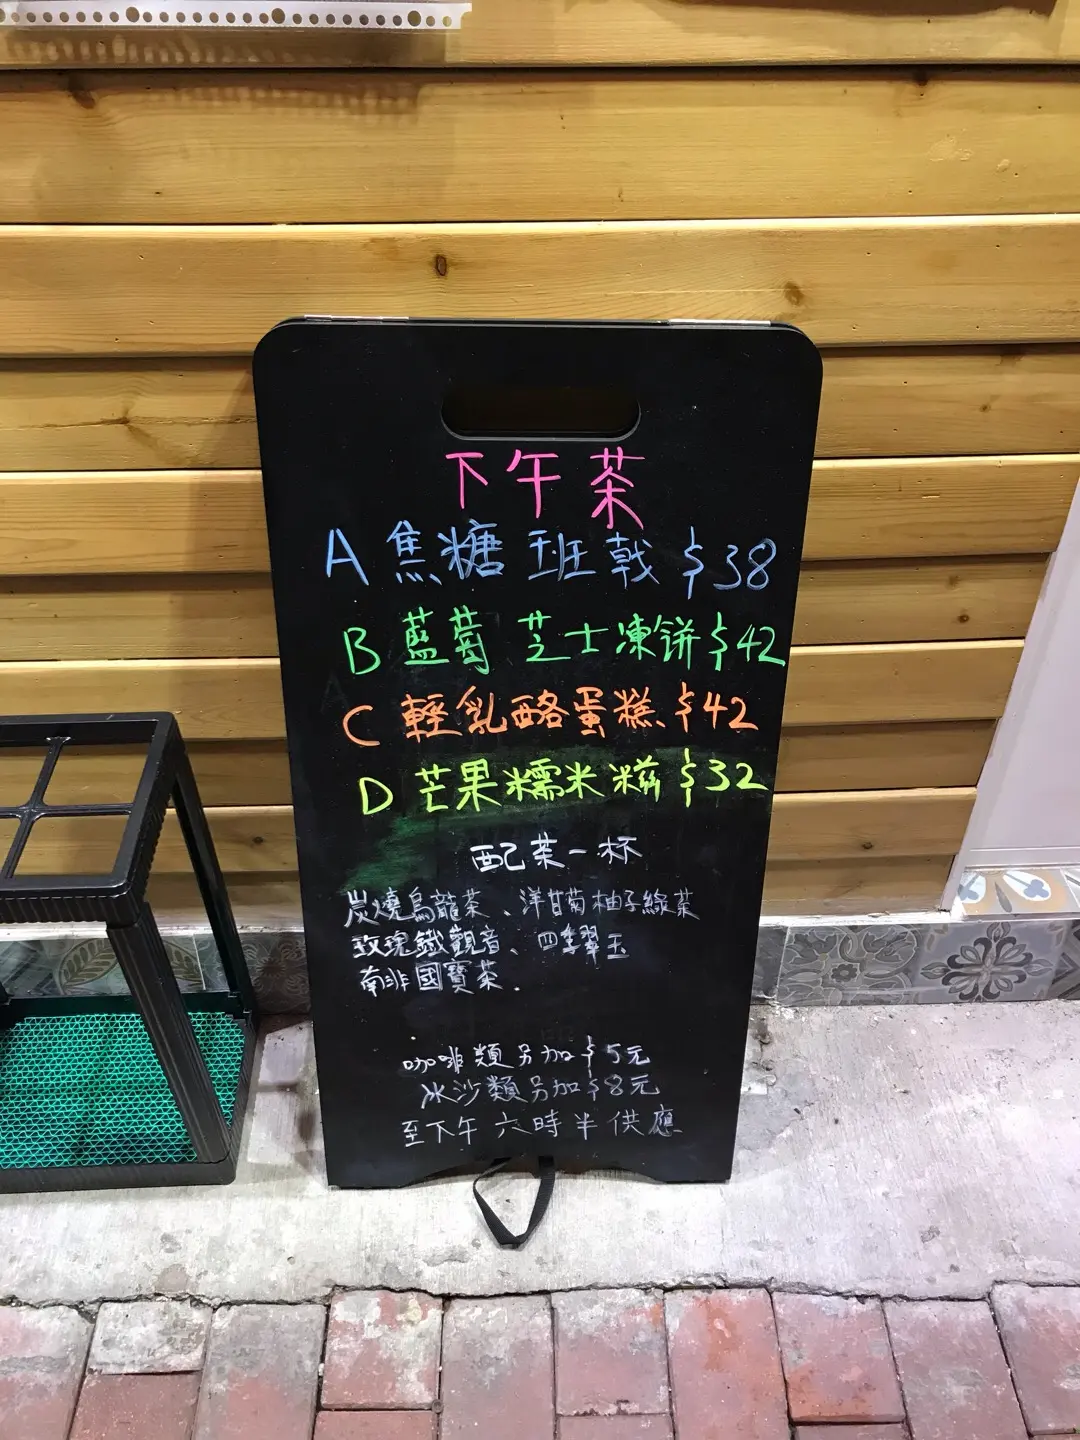 下午茶
A 焦糖班戟 $38
B 藍莓 芝士凍餅 $42
C 輕乳酪蛋糕 $42
D 芒果糯米糍 $32
配茶一杯
炭燒烏龍茶、洋甘菊柚子綠茶
玫瑰鐵觀音、四季翠玉
南非國寶茶.
咖啡類另加$5元
冰沙類另加$8元
至下午六時半供應